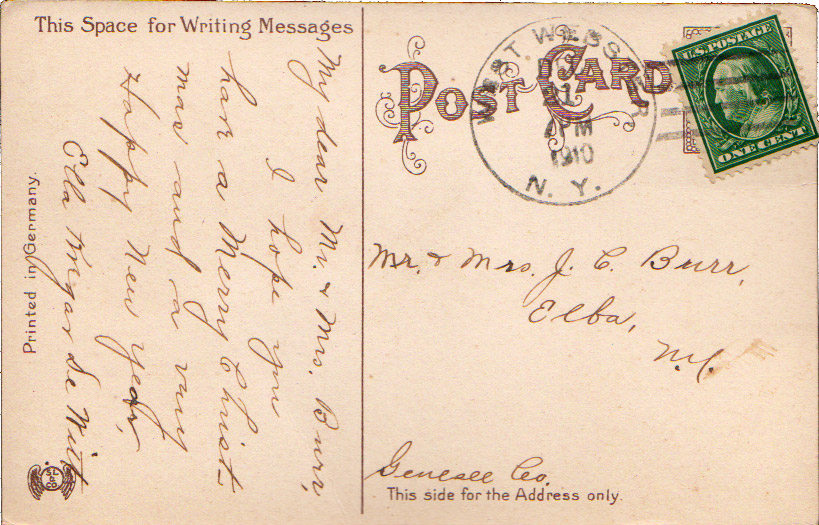 This Space for Writing Messages
My dear Mr. & Mrs. Burr,
I hope you
have a Merry Christ-
mas and a very
Happy New Year,
Ella De Witt
Printed in Germany.
SL
& Co
POST CARD
WEST WEBSTER
1
PM
1910
N. Y.
U.S. POSTAGE
ONE CENT
Mr. & Mrs. J. C. Burr,
Elba,
N.Y.
Genesee Co.
This side for the Address only.